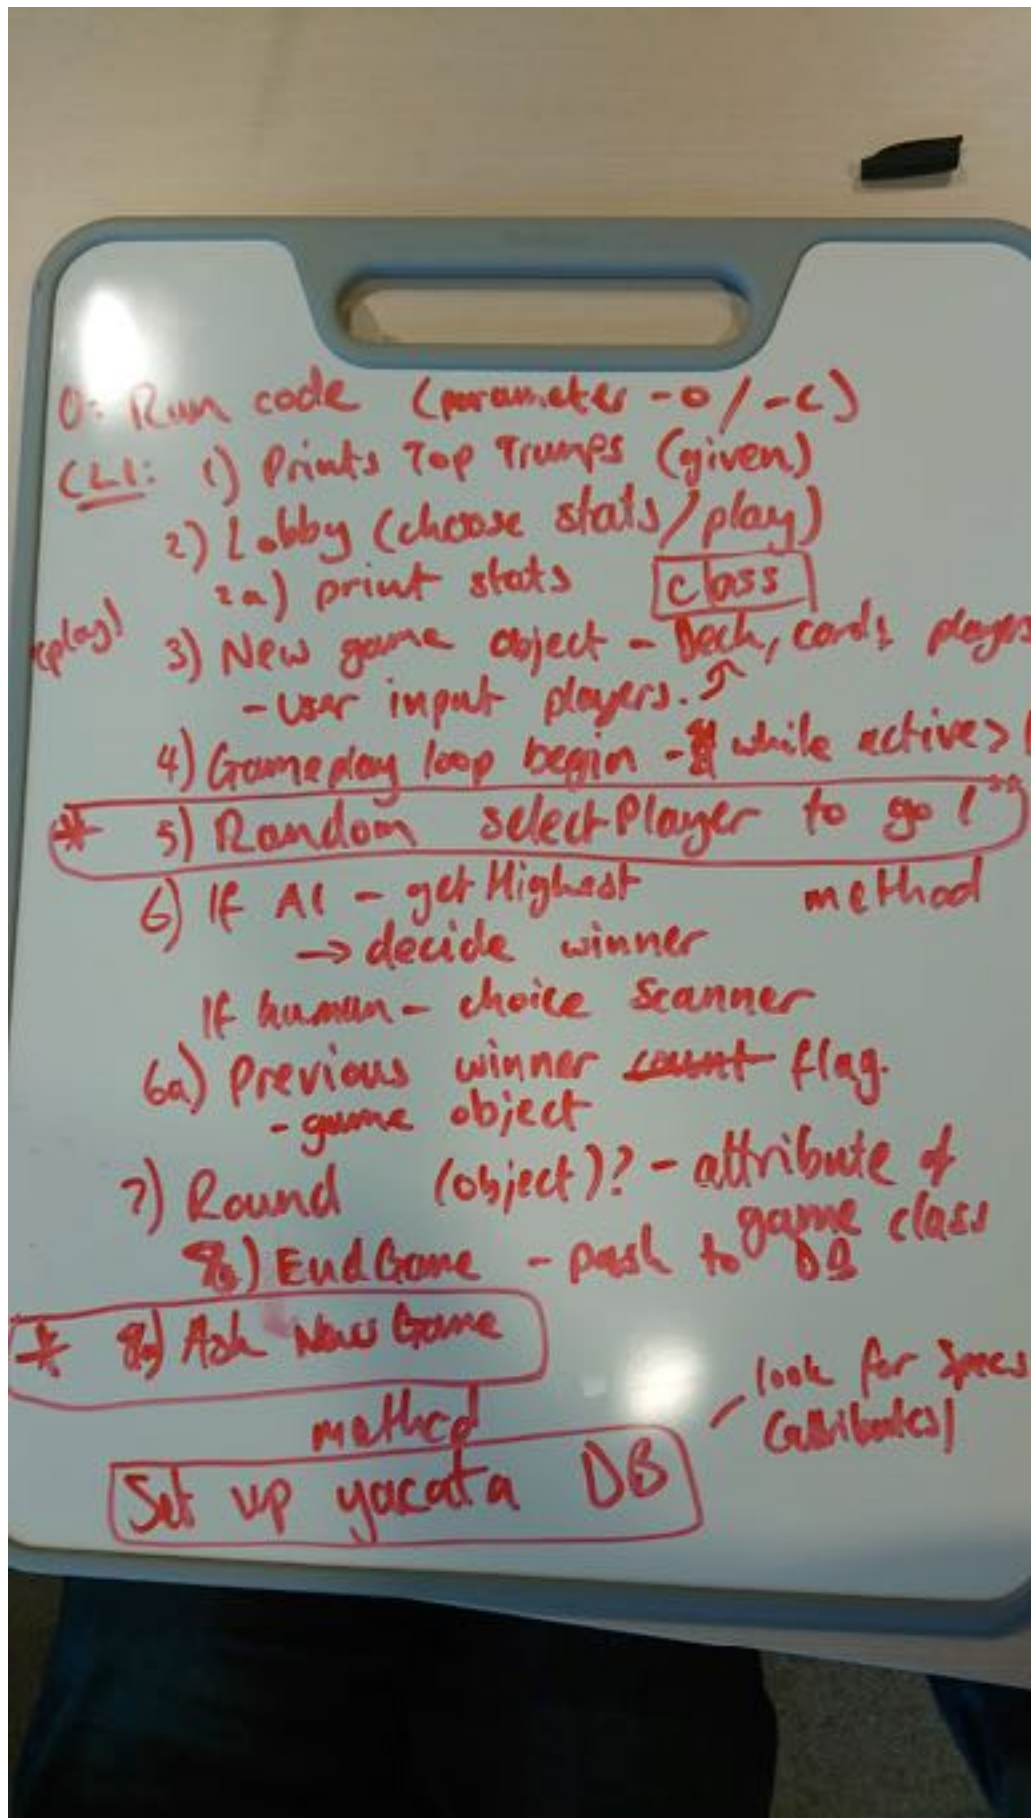 0: Run code (parameter -o / -c)
CLI: 1) Prints Top Trumps (given)
2) Lobby (choose stats/play)
2a) print stats class
(play) 3) New game object - Deck, cards, players
- user input players.
4) Gameplay loop begin - while active >
* 5) Random selectPlayer to go 1st
method
6) If AI - getHighest
→ decide winner
If human - choice Scanner
6a) Previous winner count flag.
- game object
7) Round (object)? - attribute of
game class
8) EndGame - push to DB
* 8a) Ask New Game
method
look for specs
(attributes)
Set up yacata DB